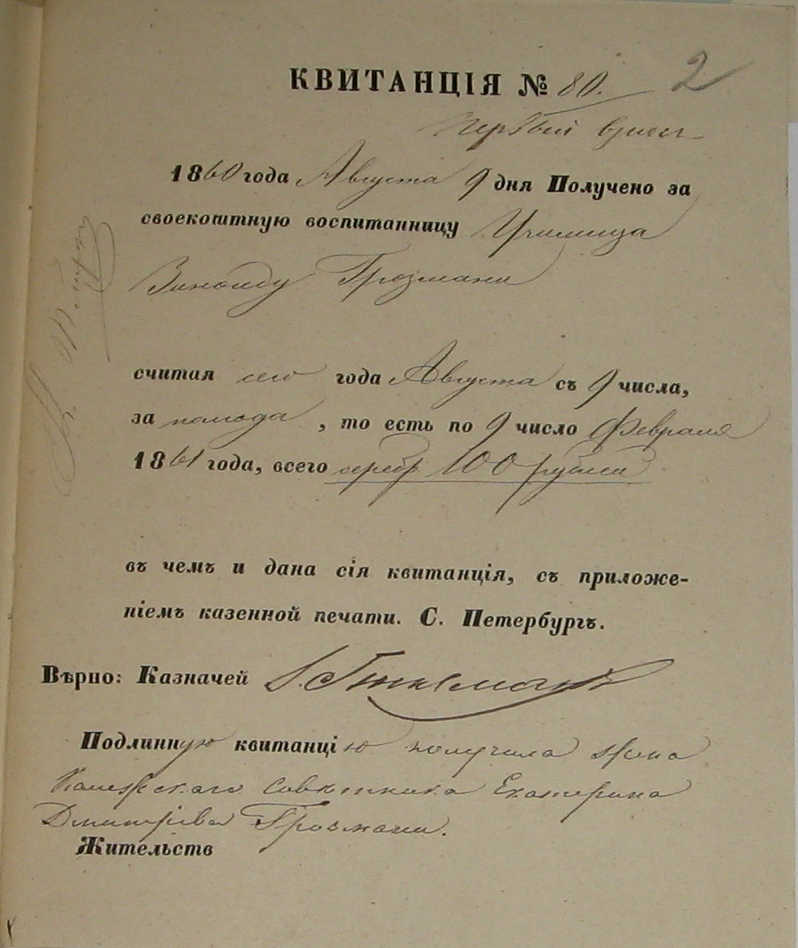 КВИТАНЦІЯ № 80. 2
первый взнос
1860 года Августа 9 дня Получено за
своекоштную воспитанницу Училища
Зинаиду Грозмани
считая сего года Августа съ 9 числа,
за полгода, то есть по 9 число Февраля
1861 года, всего серебр 100 рублей
въ чемъ и дана сія квитанція, съ приложе-
ніемъ казенной печати. С. Петербургъ.
Вѣрно: Казначей
Подлинную квитанцію получила жена
Колежскаго Совѣтника Екатерина
Дмитріева Грозмани.
Жительств